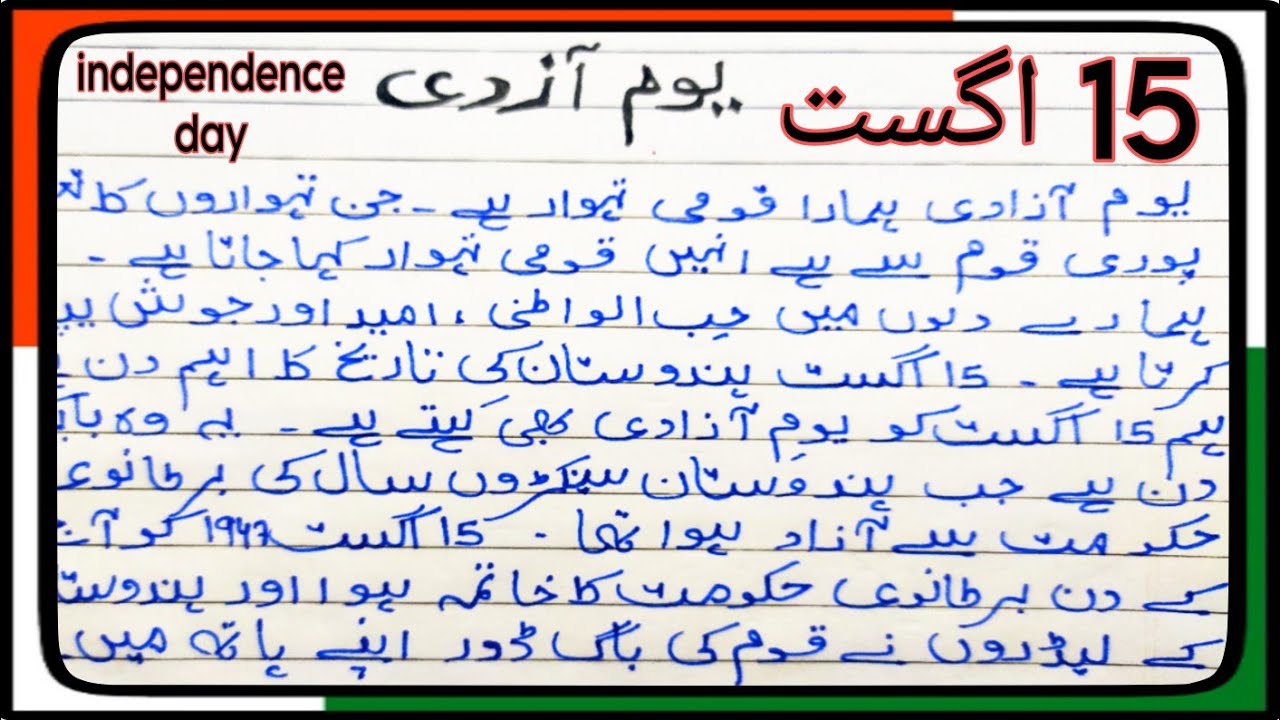 15 اگست
یوم آزدی
independence
day
یوم آزادی ہمارا قومی تہوار ہے۔ جن تہواروں کا
پوری قوم سے ہے انہیں قومی تہوار کہا جاتا ہے۔
ہمارے دلوں میں حب الواطنی ، امید اور جوش
کرتا ہے۔ 15 اگست ہندوستان کی تاریخ کا اہم دن
ہم 15 اگست کو یوم آزادی بھی کہتے ہے۔ یہ وہ
دن ہے جب ہندوستان سینکڑوں سال کی برطانوی
حکومت سے آزاد ہوا تھا۔ 15 اگست 1947 کو
کے دن برطانوی حکومت کا خاتمہ ہوا اور ہندوست
کے لیڈروں نے قوم کی باگ ڈور اپنے ہاتھ میں